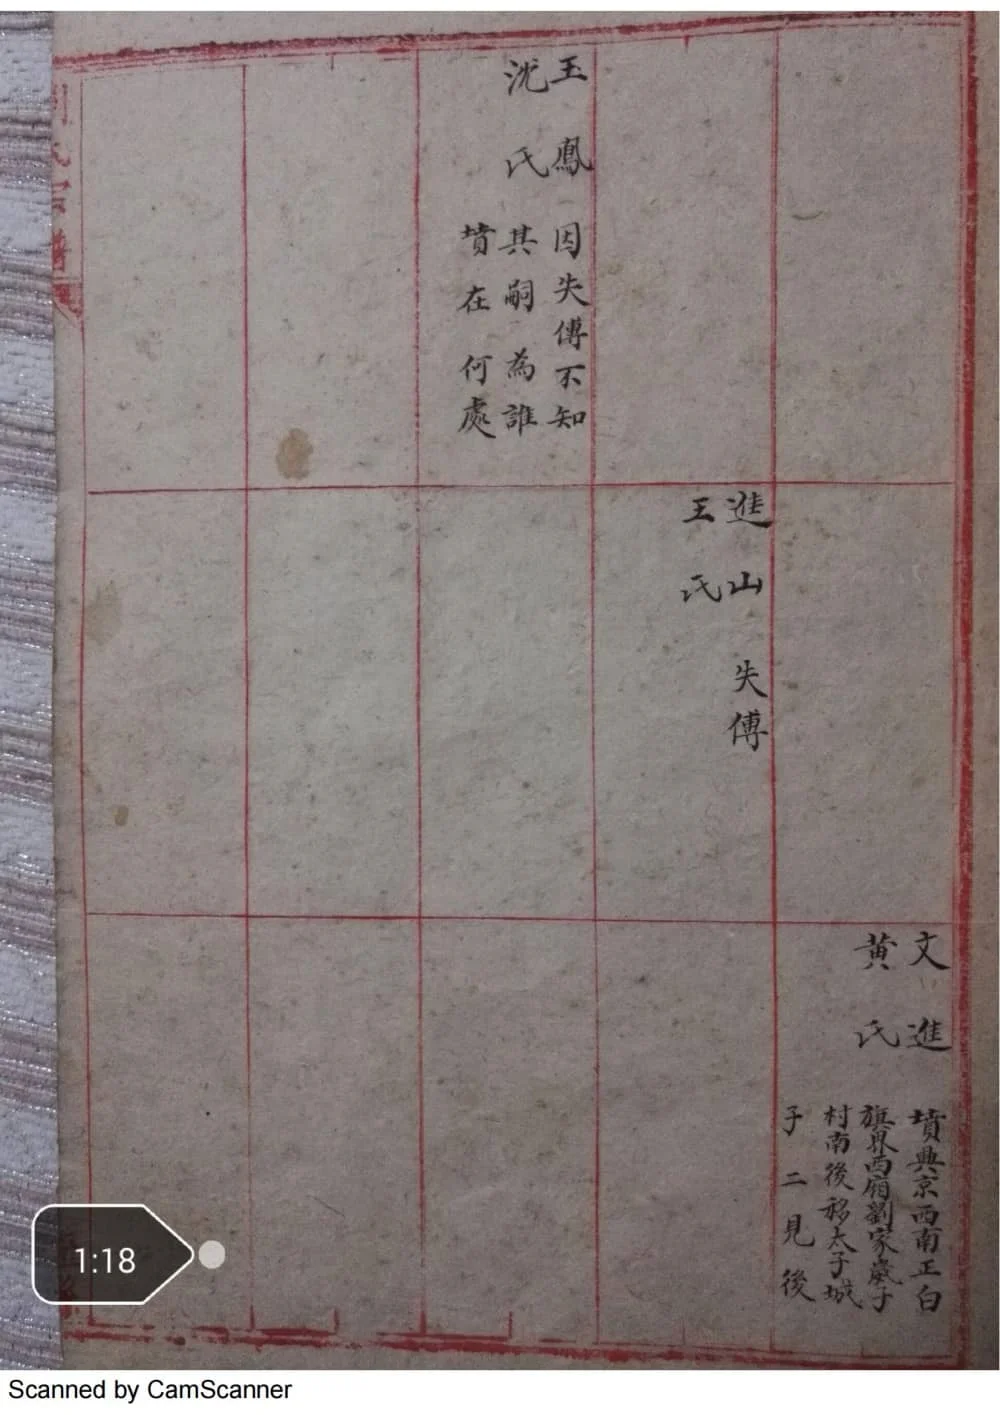 玉鳳
沈氏
因失傳不知
其嗣為誰
墳在何處
進山 失傳
王氏
文進
黃氏
墳興京西南正白
旗界西廂劉家歲子
村南後移太子城
子二見後
氏宗譜
1:18
Scanned by CamScanner